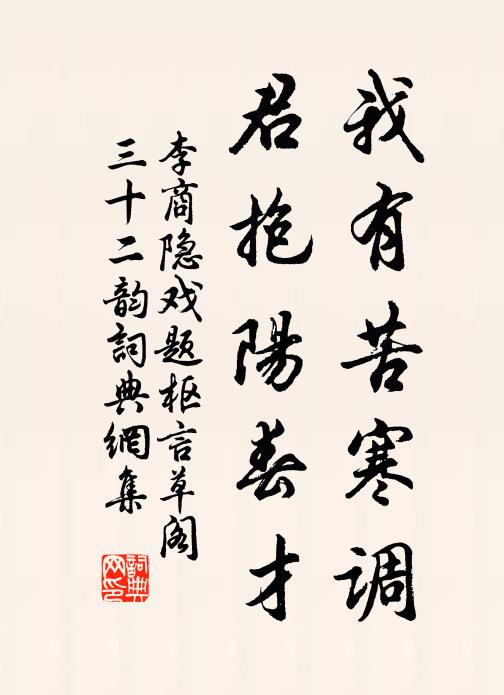 我有苦寒調
君抱陽春才
李商隐戏题枢言草阁
三十二韵詞典網集
詞典
网印